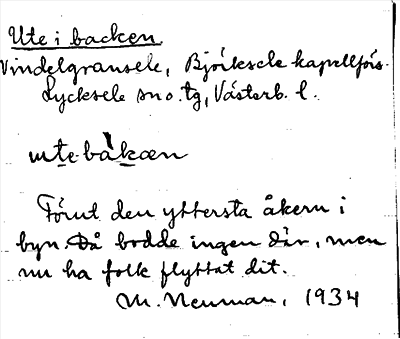 Ute i backen
Vindelgransele, Björksele kapellförs.
Lycksele sn o. tg, Västerb. l.
ute bàkæn
Förut den yttersta åkern i
byn. Då bodde ingen där, men
nu ha folk flyttat dit.
M. Neuman, 1934